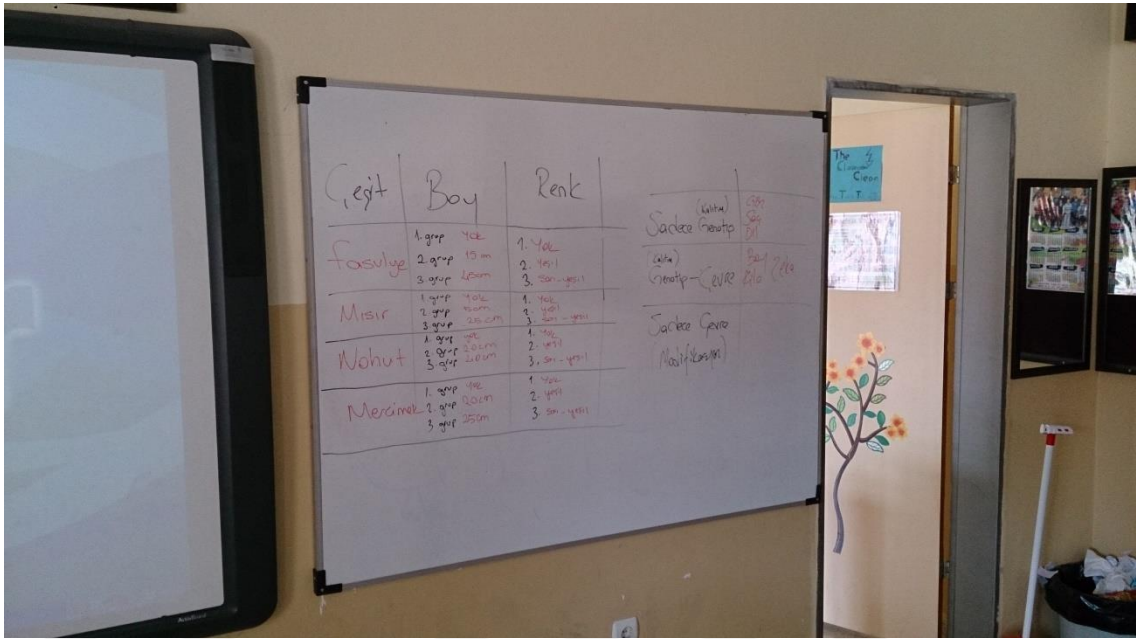 Çeşit Boy Renk
Fasulye
1. grup Yok
2. grup 15 m
3. grup 45cm
1. Yok
2. Yeşil
3. sarı-yeşil
Mısır
1. grup Yok
2. grup 5cm
3. grup 25 cm
1. Yok
2. Yeşil
3. sarı-yeşil
Nohut
1. grup Yok
2. grup 20cm
3. grup 40cm
1. Yok
2. yeşil
3. sarı-yeşil
Mercimek
1. grup Yok
2. grup 20cm
3. grup 25cm
1. Yok
2. yeşil
3. sarı-yeşil
(Kalıtım)
Sadece Genotip
Göz
Saç
(Kalıtım)
Genotip-Çevre
Boy
Kilo Zeka
Sadece Çevre
(Modifikasyon)
The
Classroom
Clean